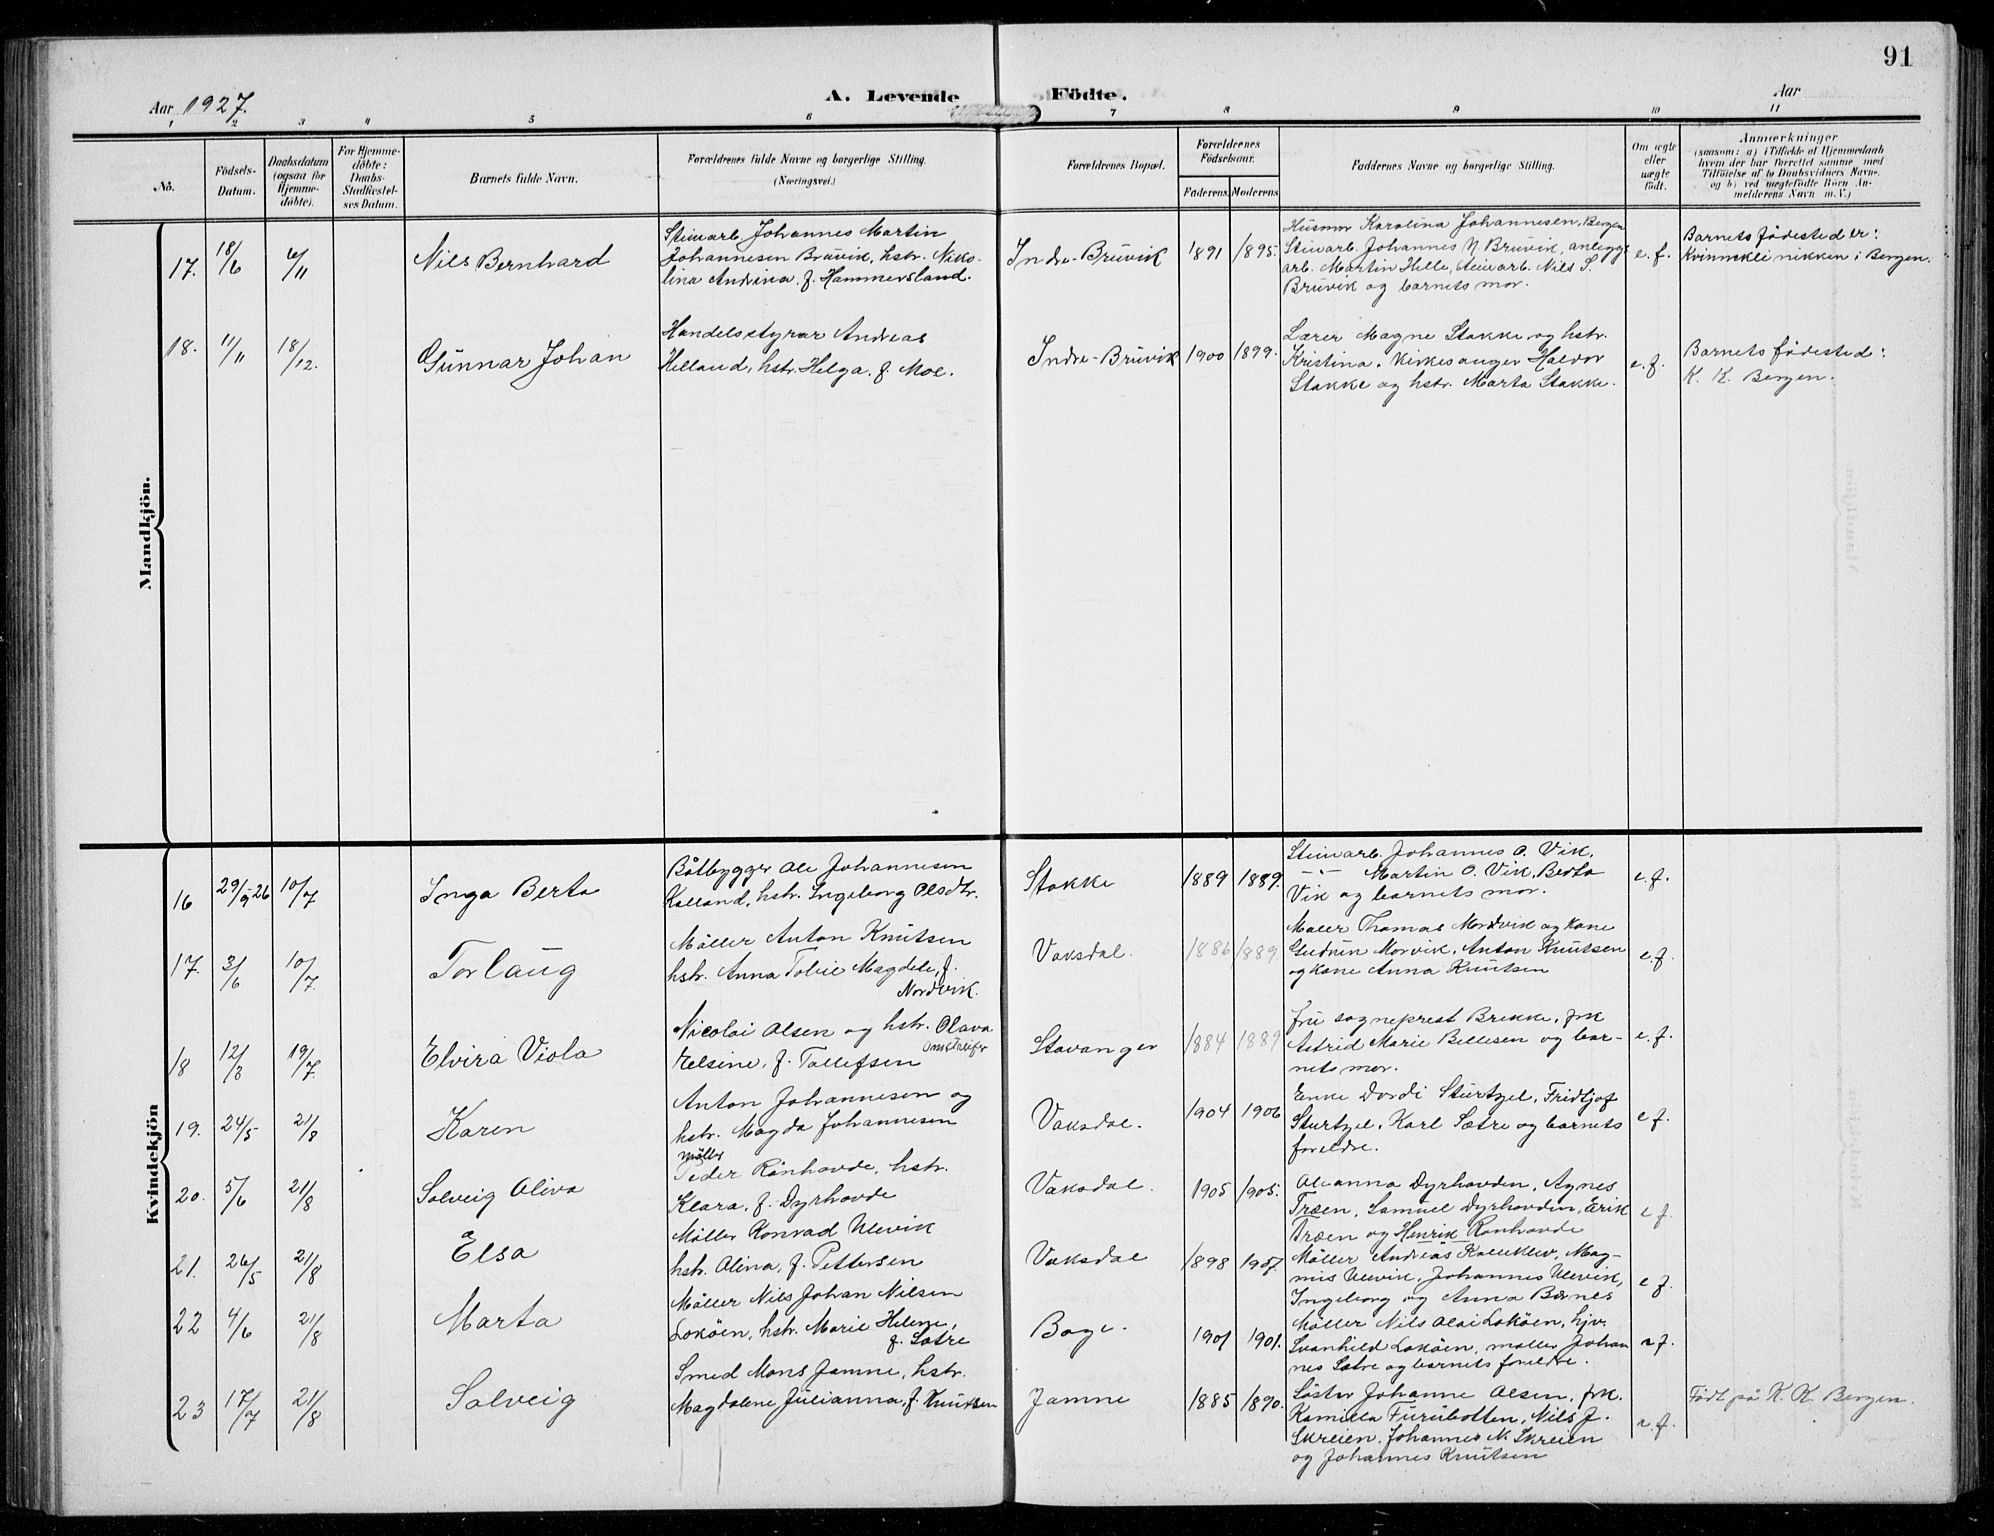 91
Aar 1927.
A. Levende Födte.
Aar
1 2 3 4 5 6 7 8 9 10 11
No.
Födsels-Datum.
Daabsdatum (ogsaa for Hjemme-döbte).
For Hjemme-döbte: Daabs-Stadfæstel-ses Datum.
Barnets fulde Navn.
Forældrenes fulde Navne og borgerlige Stilling. (Næringsvei.)
Forældrenes Bopæl.
Forældrenes Födselsaar.
Faderens. Moderens.
Faddernes Navne og borgerlige Stilling.
Om ægte eller uægte födt.
Anmærkninger (saasom: a) i Tilfælde af Hjemmedaab hvem der har forrettet samme, med Tilföielse af to Daabsvidners Navne. og b) ved uægtefödte Börn An-melderens Navn m. V.)
Mandkjön.
17. 18/6 6/11 Nils Bernhard
Steinarb. Johannes Martin
Johannesen Bruvik, hstr. Niko-
lina Andrina, f. Hammersland.
Indre-Bruvik 1891 1895.
Husmor Karolina Johannesen, Bergen
Steinarb. Johannes N. Bruvik, anleggs
arb. Martin Helle, steinarb. Nils S.
Bruvik og barnets mor.
e. f.
Barnets födested er:
Kvinneklinikken i Bergen.
18. 11/11 18/12. Gunnar Johan
Handelsstyrar Andreas
Helland, hstr. Helga, f. Moe.
Indre-Bruvik 1900 1899.
Lærer Magne Stakke og hstr.
Kristina. Kirkesanger Haldor
Stakke og hstr. Marta Stakke.
e. f.
Barnets födested:
K. K. Bergen.
Kvindekjön
16 29/9-26 10/7 Inga Berta
Båtbygger Ole Johannesen
Kalland, hstr. Ingeborg Olsdtr.
Stakke 1889 1889.
Steinarb. Johannes O. Vik,
-"- Martin O. Vik, Berta
Vik og barnets mor.
e. f.
17. 3/6 10/7. Torlaug
Möller Anton Knutsen
hstr. Anna Tobie Magdele, f.
Nordvik.
Vaksdal. 1886 1889
Maler Thomas Mordvik og kone
Gudrun Morvik, Anton Knutsen
og kone Anna Knutsen
e. f.
18 12/3 19/7. Elvira Viola
Nicolai Olsen og hstr. Olava
Elsine, f. Tollefsen
Stavanger 1884 1889
Fru sogneprest Brekke, frk
Astrid Marie Bellesen og bar-
nets mor.
e. f.
19. 24/5 21/8 Karen
Anton Johannesen og
hstr. Magda Johannesen
Vaksdal. 1904 1906
Enke Dordi Sturtzel, Fridtjof
Sturtzel, Karl Sætre og barnets
foreldre.
e f.
20. 5/6 21/8 Solveig Oliva
möller
Peder Rönhovde, hstr.
Klara, f. Dyrhovde
Vaksdal. 1905 1905.
Oleanna Dyrhovden, Agnes
Træen, Samuel Dyrhovden, Erik
Træen og Henrik Ronhovde
e f.
21. 26/5 21/8 Elsa
Möller Konrad Ulevik
hstr. Olina, f. Pettersen
Vaksdal 1898 1907.
Möller Andreas Kaluklev, Mag-
nus Ulevik, Johannes Ulevik,
Ingeborg og Anna Børnes
e f.
22 4/6 21/8 Marta
Möller Nils Johan Nilsen
Loköen, hstr. Marie Helene,
f. Sætre
Boge. 1901 1901.
Möller Nils Olai Loköen, hjv.
Svanhild Loköen, möller Johan
nes Sætre og barnets foreldre.
e f.
23 17/7 21/8 Solveig
Smed Mons Jamne, hstr.
Magdalene Julianna, f. Knutsen
Jamne 1885 1890.
Söster Johanne Olsen, frk.
Kamilla Furubotten, Nils J.
Skreien, Johannes N. Skreien
og Johannes Knutsen
e. f.
Född på K. K. Bergen.